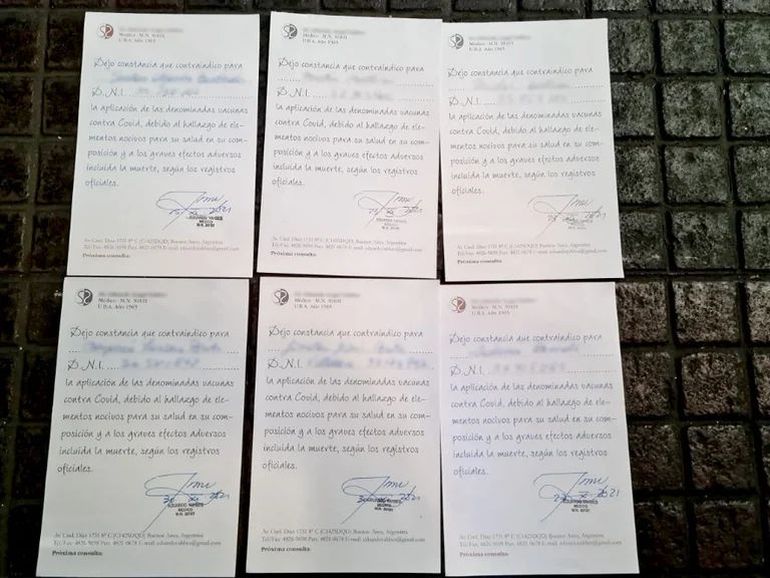 Médico - M.N.
U.B.A. Año 1965
Dejo constancia que contraindico para
D.N.I.
la aplicación de las denominadas vacunas
contra Covid, debido al hallazgo de ele-
mentos nocivos para su salud en su com-
posición y a los graves efectos adversos
incluida la muerte, según los registros
oficiales.
2021
MEDICO
Av. Cnel. Díaz 1731 8º C (C1425DQD) Buenos Aires, Argentina
Tel/Fax: Part: E-mail:
Próxima consulta:
Médico - M.N.
U.B.A. Año 1965
Dejo constancia que contraindico para
D.N.I.
la aplicación de las denominadas vacunas
contra Covid, debido al hallazgo de ele-
mentos nocivos para su salud en su com-
posición y a los graves efectos adversos
incluida la muerte, según los registros
oficiales.
2021
MEDICO
Av. Cnel. Díaz 1731 8º C (C1425DQD) Buenos Aires, Argentina
Tel/Fax: Part: E-mail:
Próxima consulta:
Médico - M.N.
U.B.A. Año 1965
Dejo constancia que contraindico para
D.N.I.
la aplicación de las denominadas vacunas
contra Covid, debido al hallazgo de ele-
mentos nocivos para su salud en su com-
posición y a los graves efectos adversos
incluida la muerte, según los registros
oficiales.
2021
MEDICO
Av. Cnel. Díaz 1731 8º C (C1425DQD) Buenos Aires, Argentina
Tel/Fax: Part: E-mail:
Próxima consulta:
Médico - M.N.
U.B.A. Año 1965
Dejo constancia que contraindico para
D.N.I.
la aplicación de las denominadas vacunas
contra Covid, debido al hallazgo de ele-
mentos nocivos para su salud en su com-
posición y a los graves efectos adversos
incluida la muerte, según los registros
oficiales.
2021
MEDICO
Av. Cnel. Díaz 1731 8º C (C1425DQD) Buenos Aires, Argentina
Tel/Fax: Part: E-mail:
Próxima consulta:
Médico - M.N.
U.B.A. Año 1965
Dejo constancia que contraindico para
D.N.I.
la aplicación de las denominadas vacunas
contra Covid, debido al hallazgo de ele-
mentos nocivos para su salud en su com-
posición y a los graves efectos adversos
incluida la muerte, según los registros
oficiales.
2021
MEDICO
Av. Cnel. Díaz 1731 8º C (C1425DQD) Buenos Aires, Argentina
Tel/Fax: Part: E-mail:
Próxima consulta:
Médico - M.N.
U.B.A. Año 1965
Dejo constancia que contraindico para
D.N.I.
la aplicación de las denominadas vacunas
contra Covid, debido al hallazgo de ele-
mentos nocivos para su salud en su com-
posición y a los graves efectos adversos
incluida la muerte, según los registros
oficiales.
2021
MEDICO
Av. Cnel. Díaz 1731 8º C (C1425DQD) Buenos Aires, Argentina
Tel/Fax: Part: E-mail:
Próxima consulta: